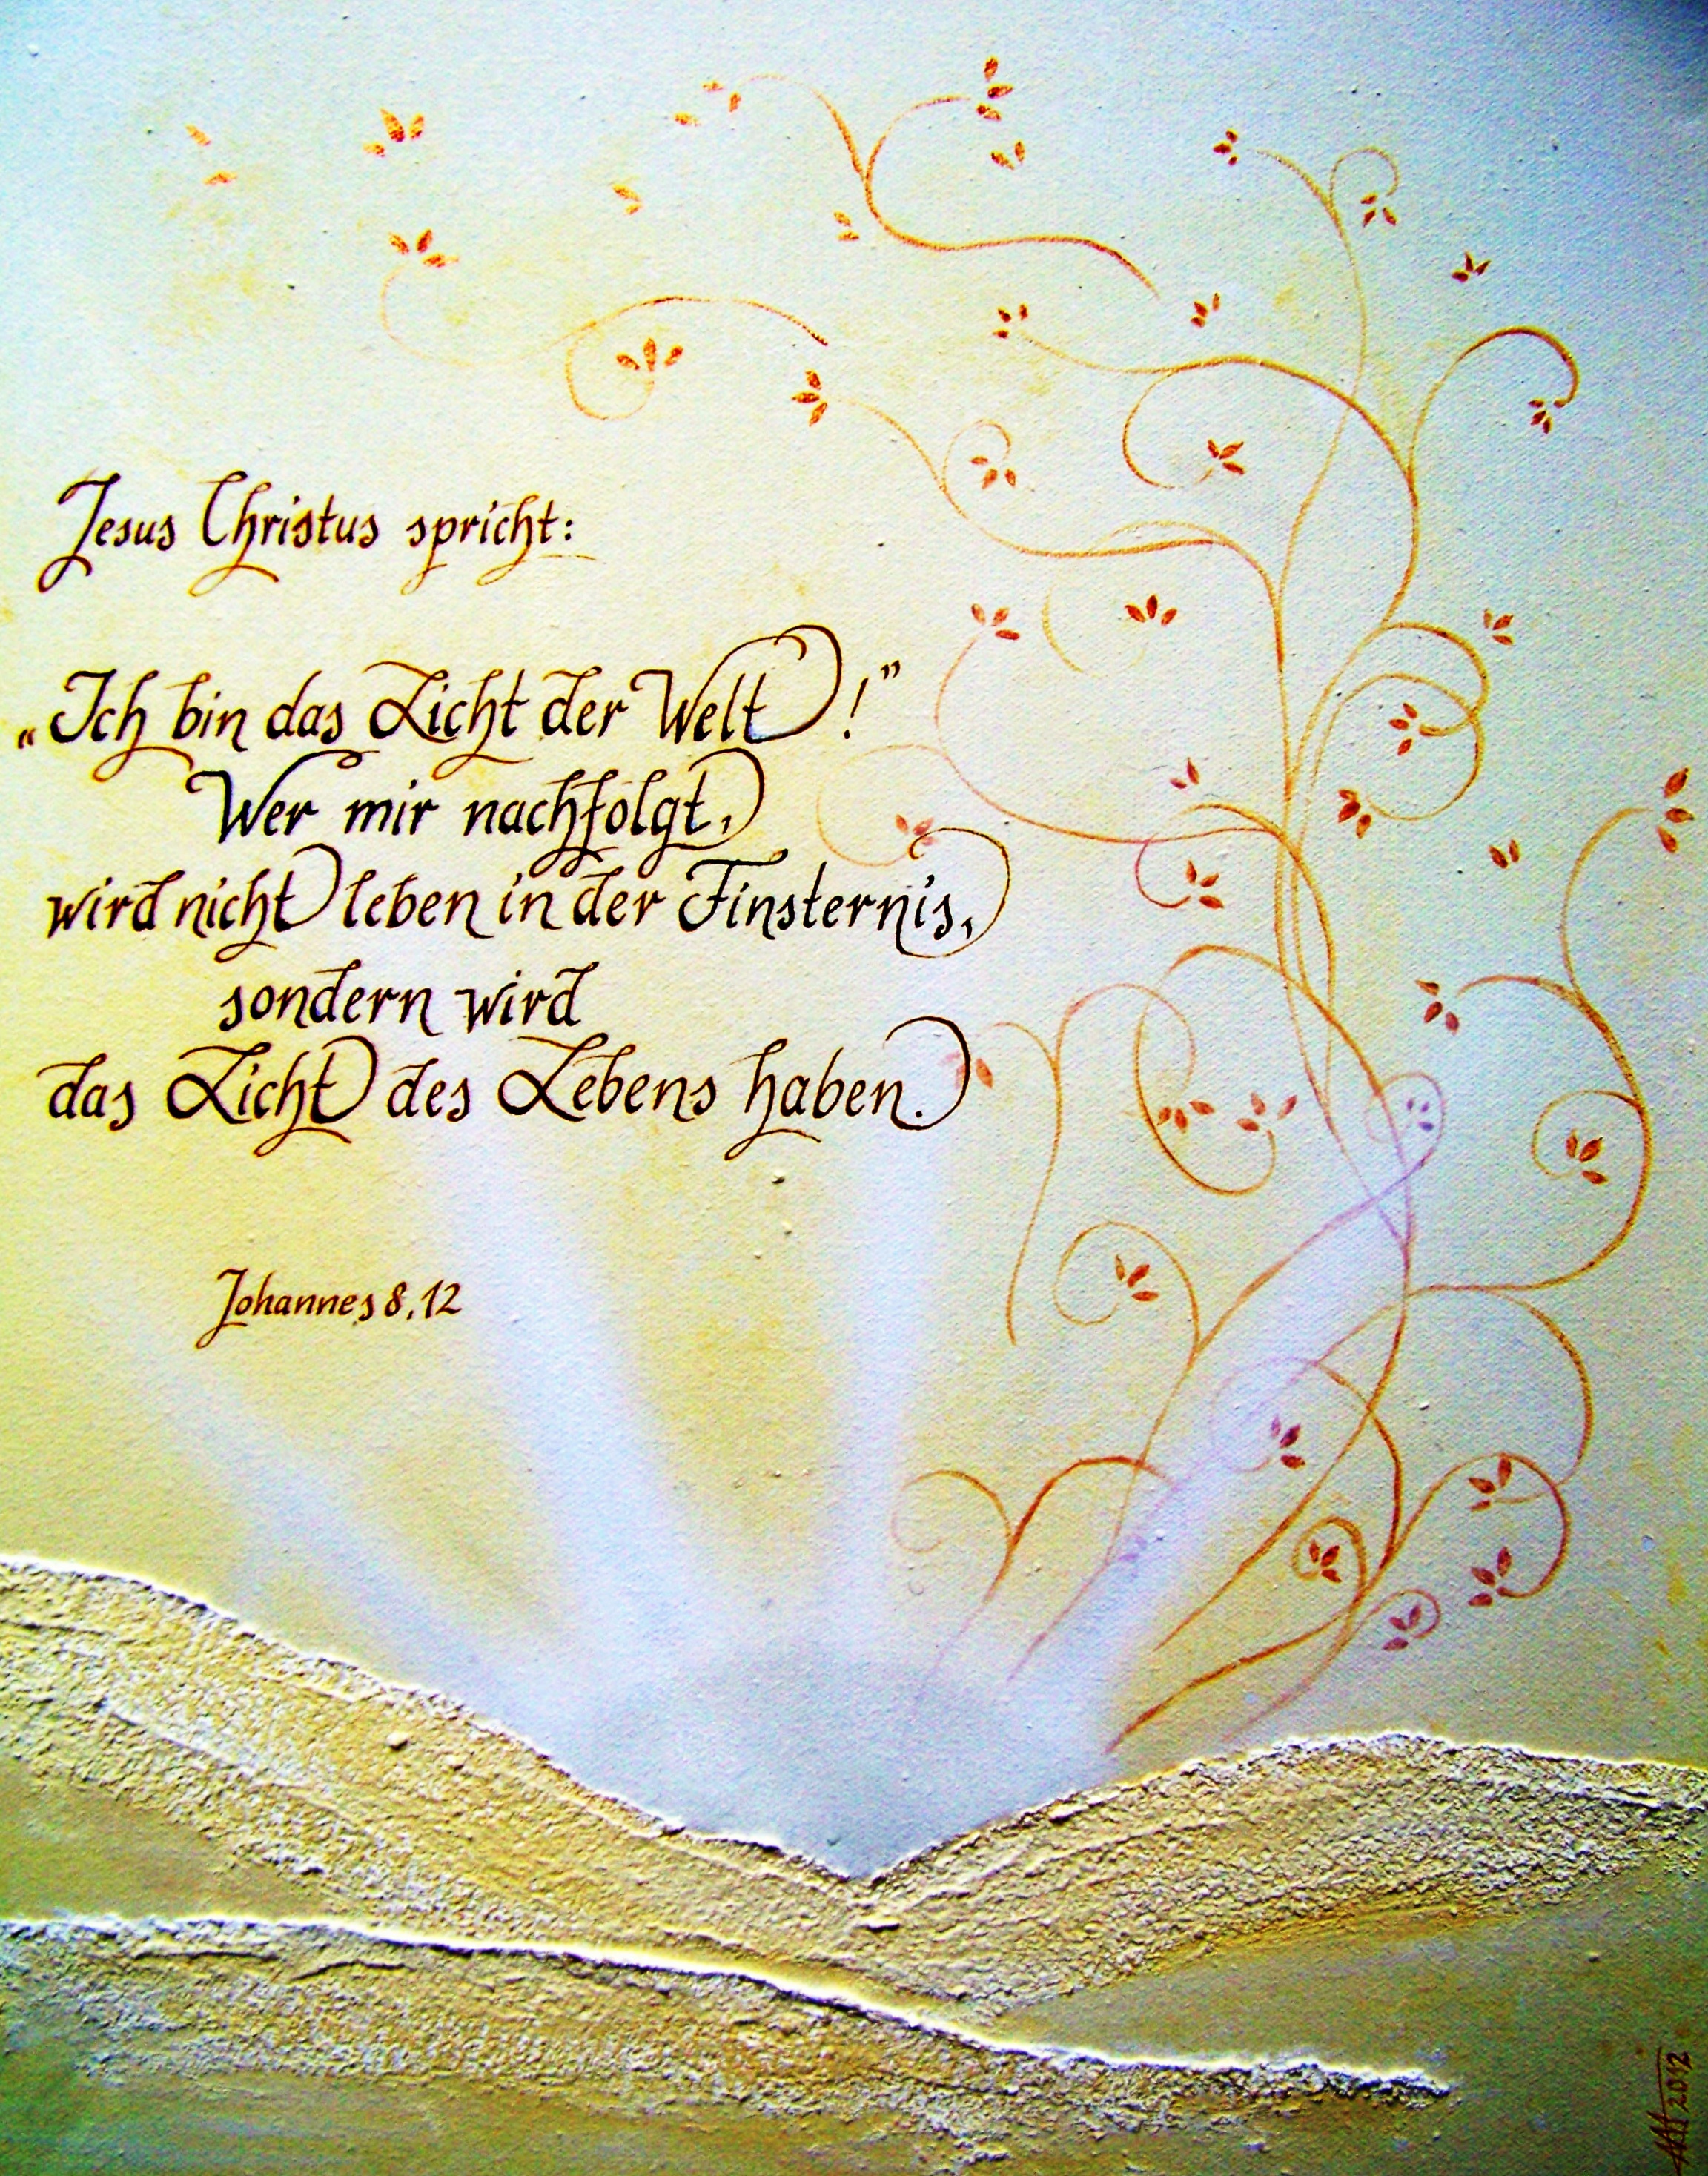 Jesus Christus spricht:
„Ich bin das Licht der Welt!”
Wer mir nachfolgt,
wird nicht leben in der Finsternis,
sondern wird
das Licht des Lebens haben.
Johannes 8,12
2012